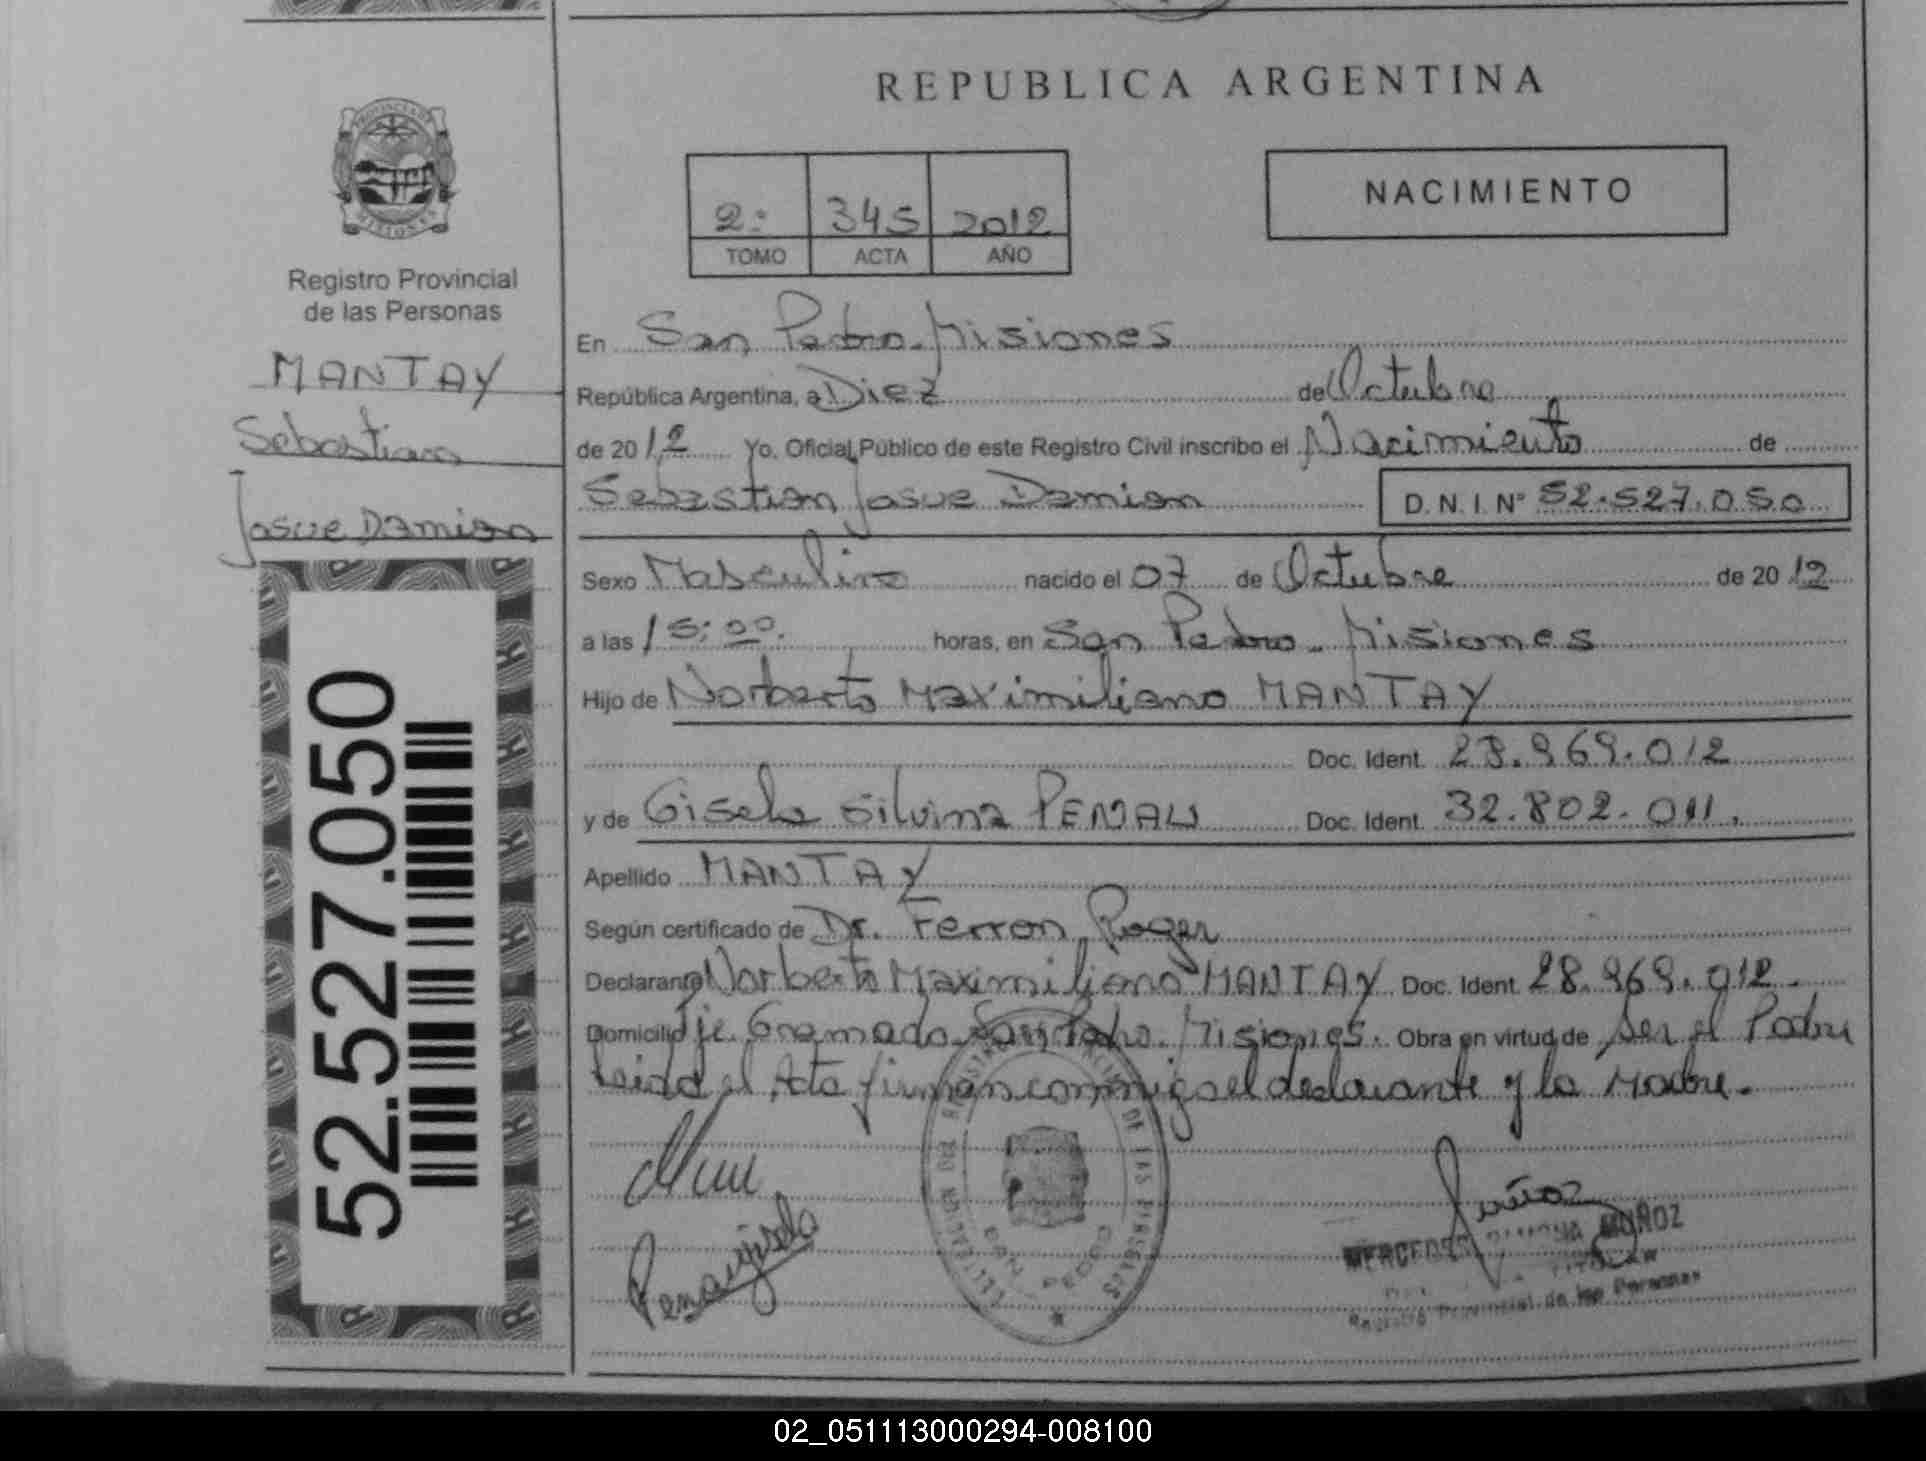 REPUBLICA ARGENTINA
PROVINCIA DE
MISIONES
Registro Provincial
de las Personas
MANTAY
Sebastian
Josue Damian
52.527.050
2: 345 2012
TOMO ACTA AÑO
NACIMIENTO
En San Pedro. Misiones
República Argentina, a Diez de Octubre
de 2012 Yo. Oficial Público de este Registro Civil inscribo el Nacimiento de
Sebastian Josue Damian D.N.I. Nº 52.527.050
Sexo Masculino nacido el 07 de Octubre de 2012
a las 15:00. horas, en San Pedro - Misiones
Hijo de Norberto Maximiliano MANTAY
Doc. Ident. 28.969.012
y de Gisela Silvina PENAU Doc. Ident. 32.802.011.
Apellido MANTAY
Según certificado de Dr. Ferron Roger
Declarante Norberto Maximiliano MANTAY Doc. Ident. 28.969.012.
Domicilio Pje. Gramado San Pedro. Misiones. Obra en virtud de ser el Padre
leida el Acta firman conmigo el declarante y la Madre.
Penau gisela
SAN PEDRO
DE LAS PERSONAS
Muñoz
MERCEDES RAMONA MUÑOZ
TITULAR
Registro Provincial de las Personas
02_051113000294-008100